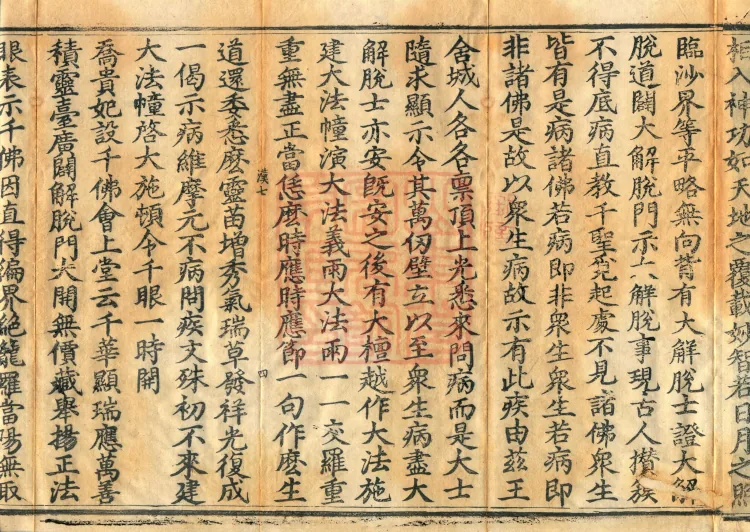 相入神功如天地之覆載妙智若日月之照
臨沙界等平略無向背有大解脫士證大解
脫道闢大解脫門示大解脫事現古人攢簇
不得底病直教千聖覓起處不見諸佛眾生
皆有是病諸佛若病即非眾生眾生若病即
非諸佛是故以眾生病故示有此疾由茲王
舍城人各各稟頂上光悉來問病而是大士
隨求顯示令其萬仞壁立以至眾生病盡大
解脫士亦安既安之後有大檀越作大法施
建大法幢演大法義雨大法雨一一交羅重
重無盡正當恁麼時應時應節一句作麼生
漢七 四
道還委悉麼靈苗增秀氣瑞草發祥光復成
一偈示病維摩元不病問疾文殊初不來建
大法幢啓大施頓令千眼一時開
喬貴妃設千佛會上堂云千華顯瑞應萬善
積靈臺廣闢解脫門大開無價藏舉揚正法
眼表示千佛因直得徧界絕籠羅當陽無取